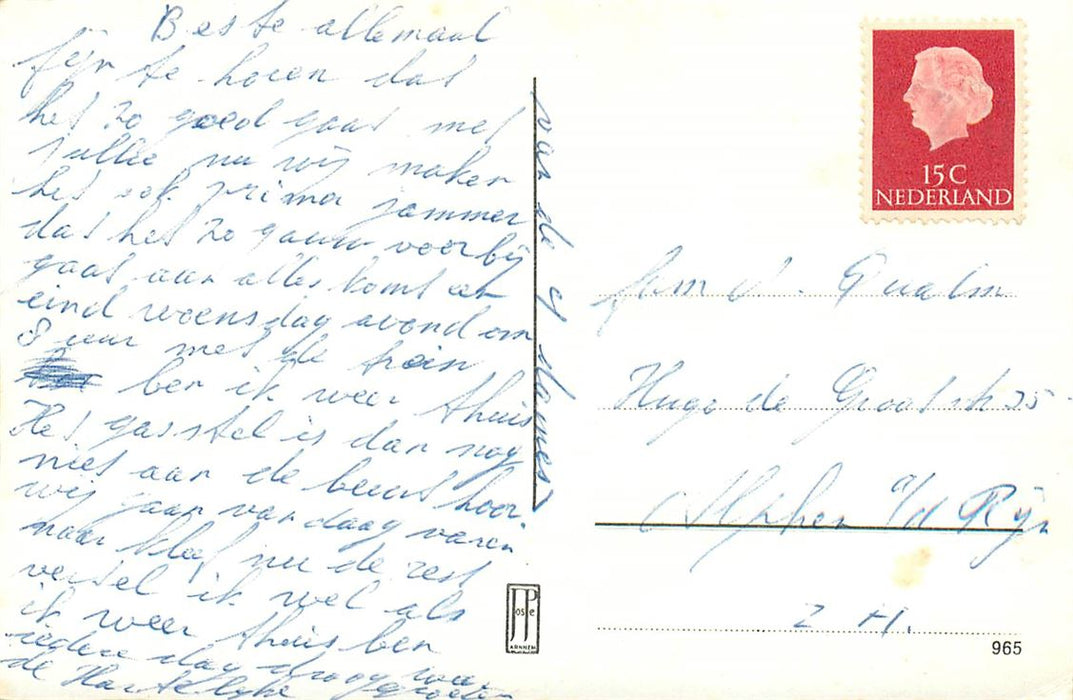 Beste allemaal
fijn te horen dat
het zo goed gaat met
jullie nu wij maken
het ook prima jammer
dat het zo gauw voorbij
gaat aan alles komt een
eind woensdag avond om
8 uur met de trein
ben ik weer thuis
Het gasstel is dan nog
niet aan de beurt hoor
wij gaan vandaag varen
maar nu de rest
vertel ik wel als
ik weer thuis ben
iedere dag droog weer
de Hartelijke groeten
van de
15 C
NEDERLAND
Fam
Hugo de Grootstr 35
Alphen a/d Rijn
Z H.
JosPe
ARNHEM
965